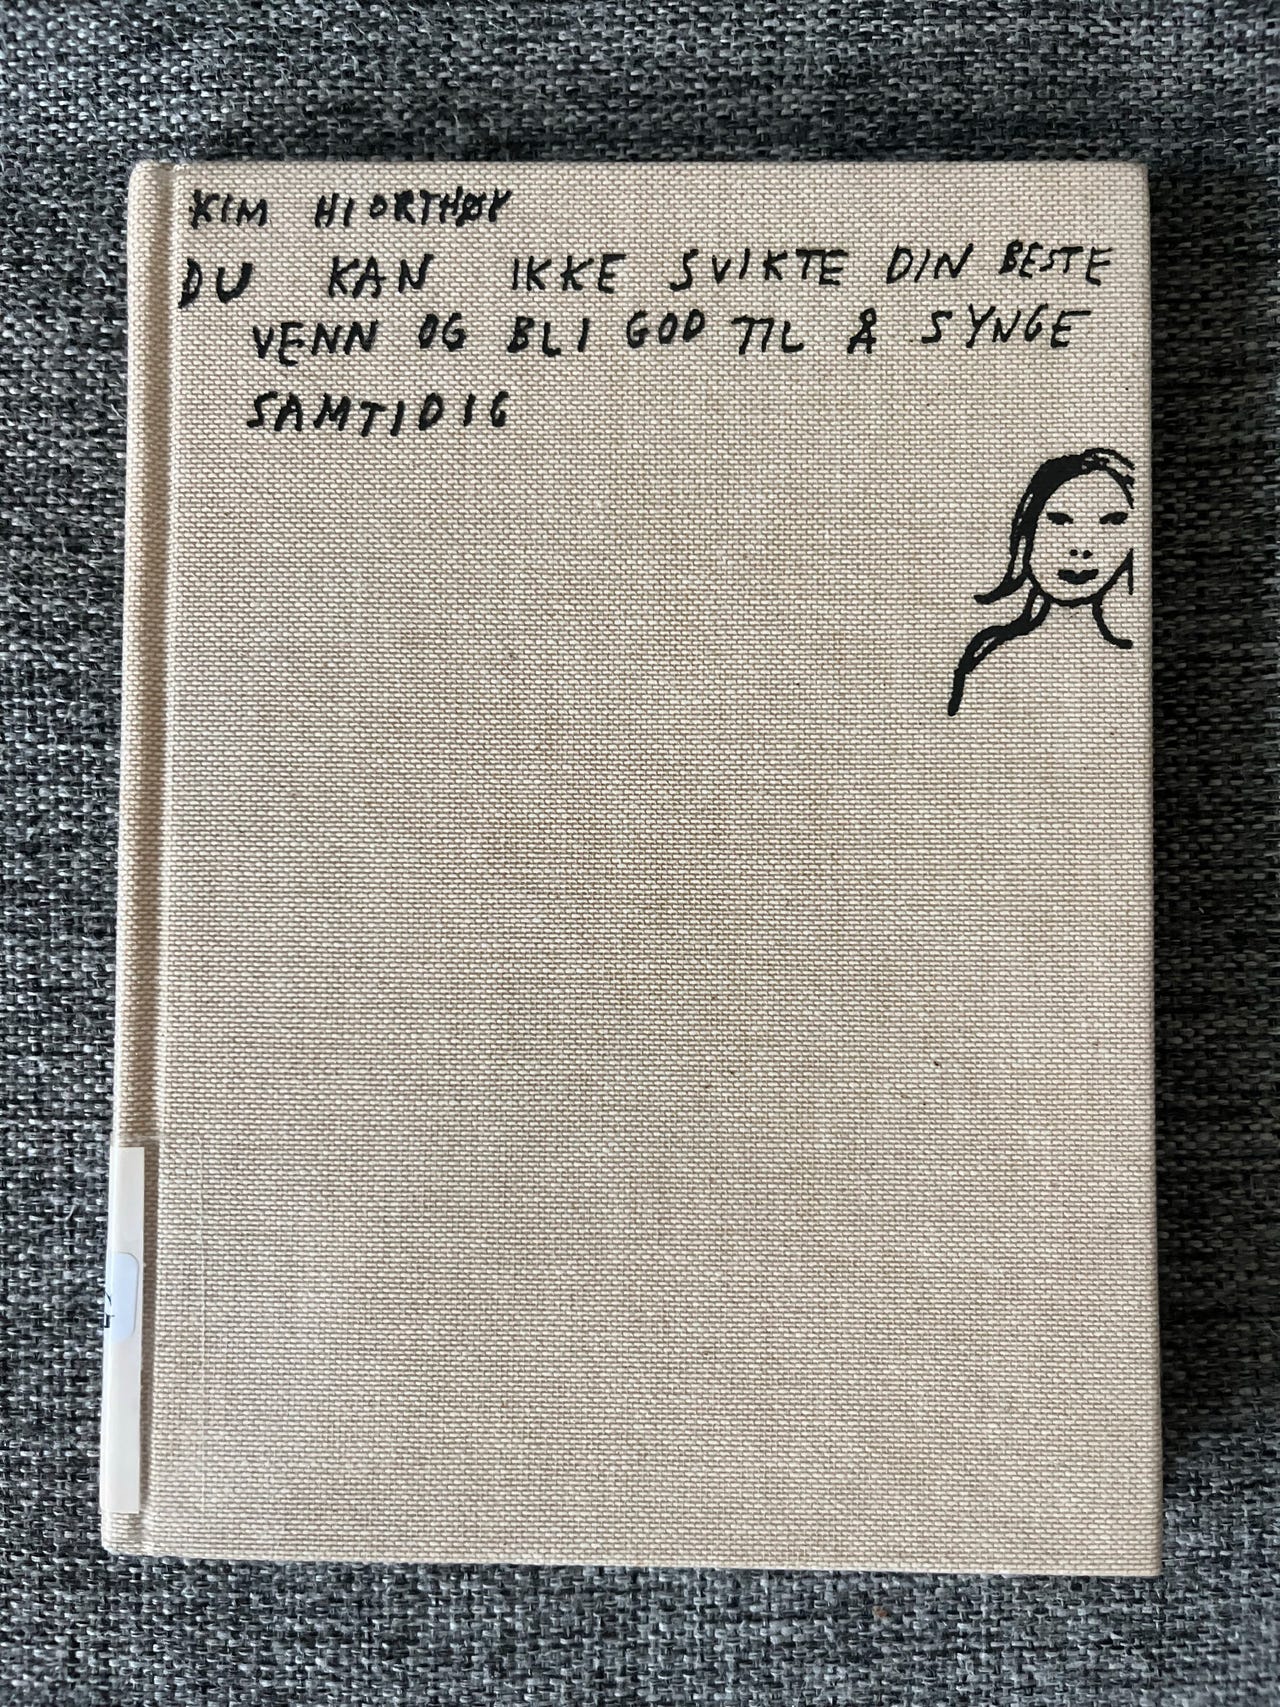 KIM HIORTHØY
DU KAN IKKE SVIKTE DIN BESTE
VENN OG BLI GOD TIL Å SYNGE
SAMTIDIG